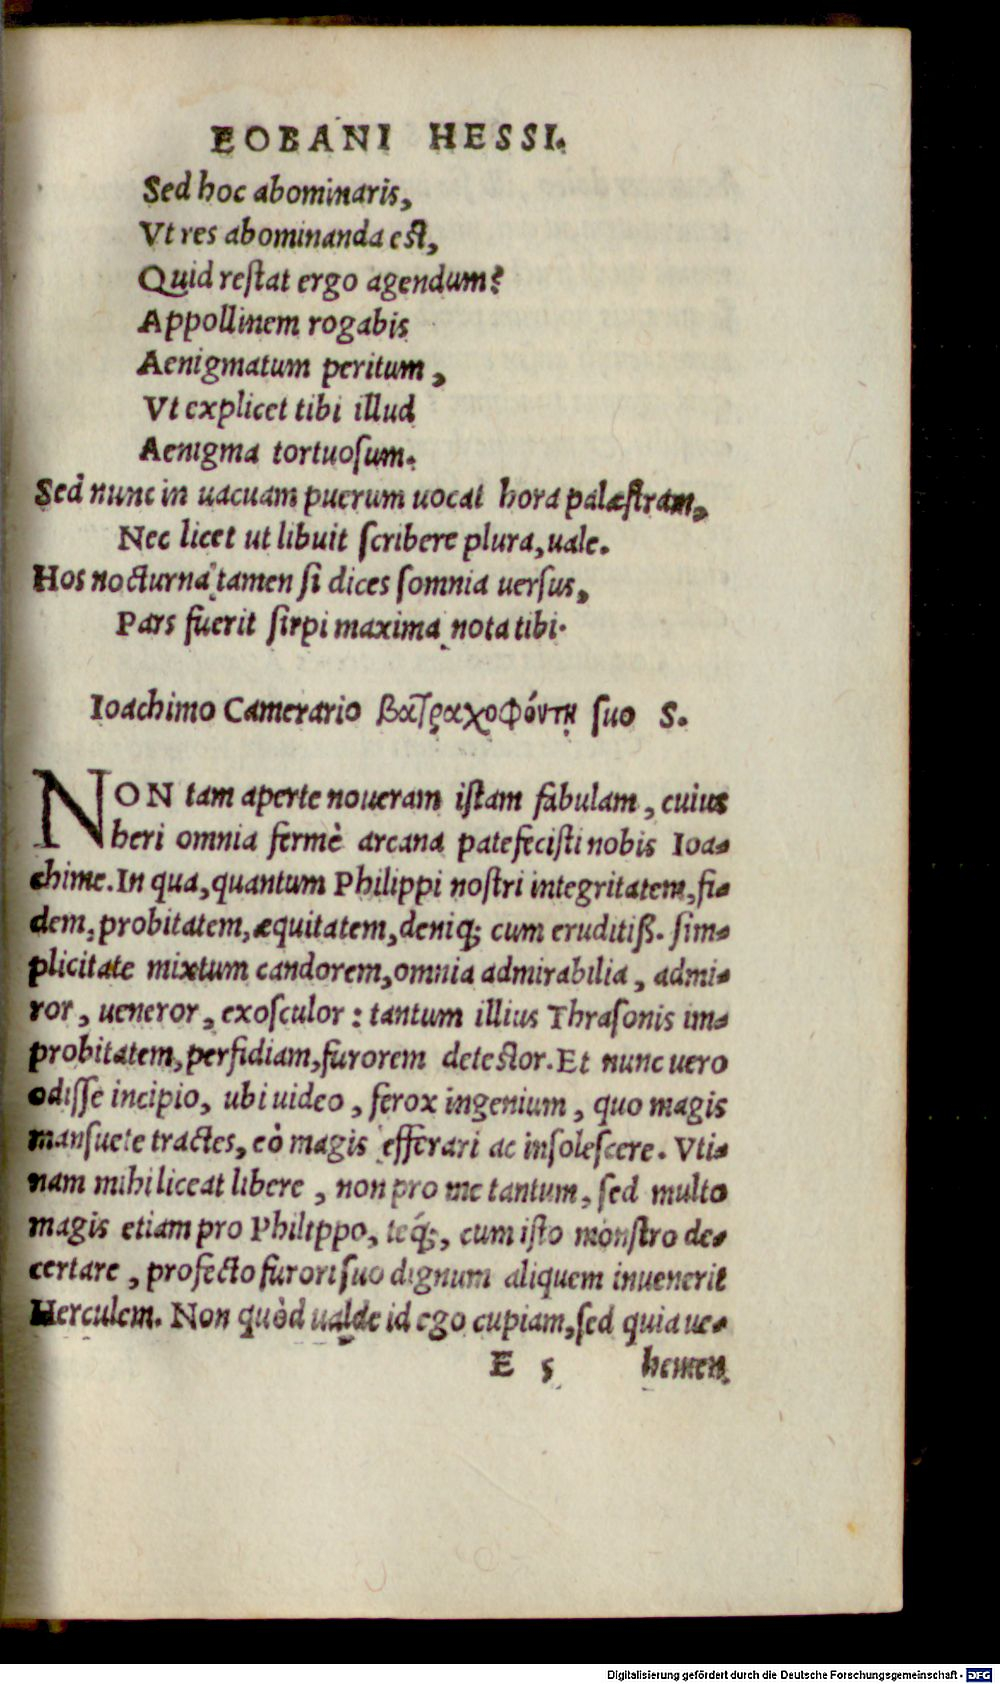 EOBANI HESSI.
Sed hoc abominaris,
Vt res abominanda est,
Quid restat ergo agendum?
Appollinem rogabis
Aenigmatum peritum,
Vt explicet tibi illud
Aenigma tortuosum.
Sed nunc in uacuam puerum uocat hora palæstram,
Nec licet ut libuit scribere plura, uale.
Hos nocturna tamen si dices somnia uersus,
Pars fuerit sirpi maxima nota tibi.
Ioachimo Camerario βατραχοφόντη suo S.
NON tam aperte noueram istam fabulam, cuius
heri omnia fermè arcana patefecisti nobis Ioa-
chime. In qua, quantum Philippi nostri integritatem, fi-
dem, probitatem, æquitatem, deniq; cum eruditiß. sim-
plicitate mixtum candorem, omnia admirabilia, admi-
ror, ueneror, exosculor: tantum illius Thrasonis im-
probitatem, perfidiam, furorem detestor. Et nunc uero
odisse incipio, ubi uideo, ferox ingenium, quo magis
mansuete tractes, eò magis efferari ac insolescere. Vti-
nam mihi liceat libere, non pro me tantum, sed multo
magis etiam pro Philippo, teq́;, cum isto monstro de-
certare, profecto furori suo dignum aliquem inuenerit
Herculem. Non quòd ualde id ego cupiam, sed quia ue-
E 5 hemen
Digitalisierung gefördert durch die Deutsche Forschungsgemeinschaft - DFG